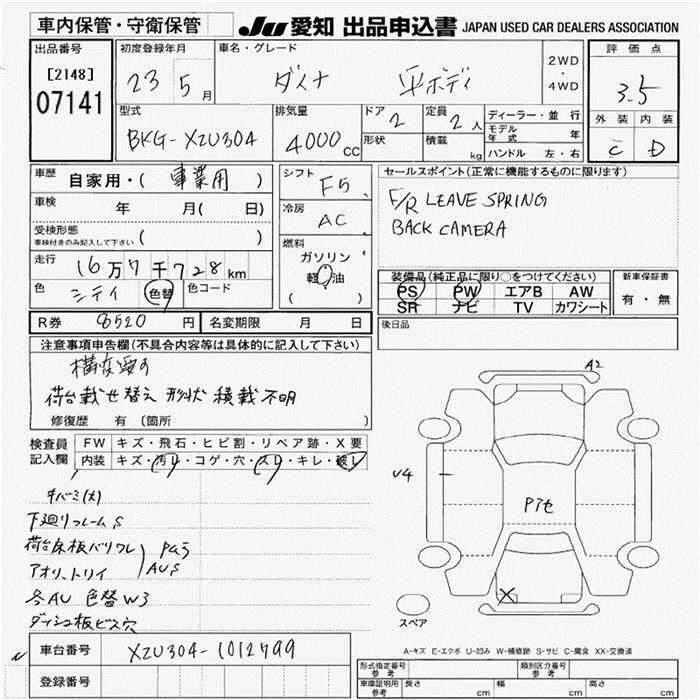 車内保管・守衛保管
JU 愛知 出品申込書 JAPAN USED CAR DEALERS ASSOCIATION
出品番号
[2148]
07141
初度登録年月
23 5 月
車名・グレード
ダイナ 平ボディ
2WD
・
4WD
評価点
3.5
外装 内装
C D
型式
BKG-XZU304
排気量
4000 CC
ドア 2
形状
定員 2 人
積載 kg
ディーラー・並行
モデル年式 年
ハンドル 左・右
車歴 自家用・( 事業用 )
車検 年 月( 日)
受検形態
車検付きのみ記入して下さい ( )
走行 16万7千728km
色 シティ 色替 色コード
シフト F5
冷房 AC
燃料
ガソリン
軽油
( )
セールスポイント(正常に機能するものに限ります)
F/R LEAVE SPRING
BACK CAMERA
装備品(純正品に限り○をつけてください)
PS PW エアB AW
SR ナビ TV カワシート
新車保証書
有・無
R券 8520 円 名変期限 月 日
後日品
注意事項申告欄(不具合内容等は具体的に記入して下さい)
構変要す
荷台載せ替え 形状 積載不明
修復歴 有 〔箇所 〕
検査員
記入欄
FW キズ・飛石・ヒビ割・リペア跡・X要
内装 キズ・汚レ・コゲ・穴・スレ・キレ・破レ
キバミ(大)
下廻りフレームS
荷台床板バリワレ
アオリ、トリイ
AUS
各AU 色替W3
ダッシュ板ビス穴
A2
U4
Pアセ
X
スペア
A-キズ E-エクボ U-凹み W-補修跡 S-サビ C-腐食 XX-交換済
車台番号 XZU304-1012799
登録番号
形式指定番号
参考
類別区分番号
参考
車庫証明用
参考
長さ cm 幅 cm 高さ cm